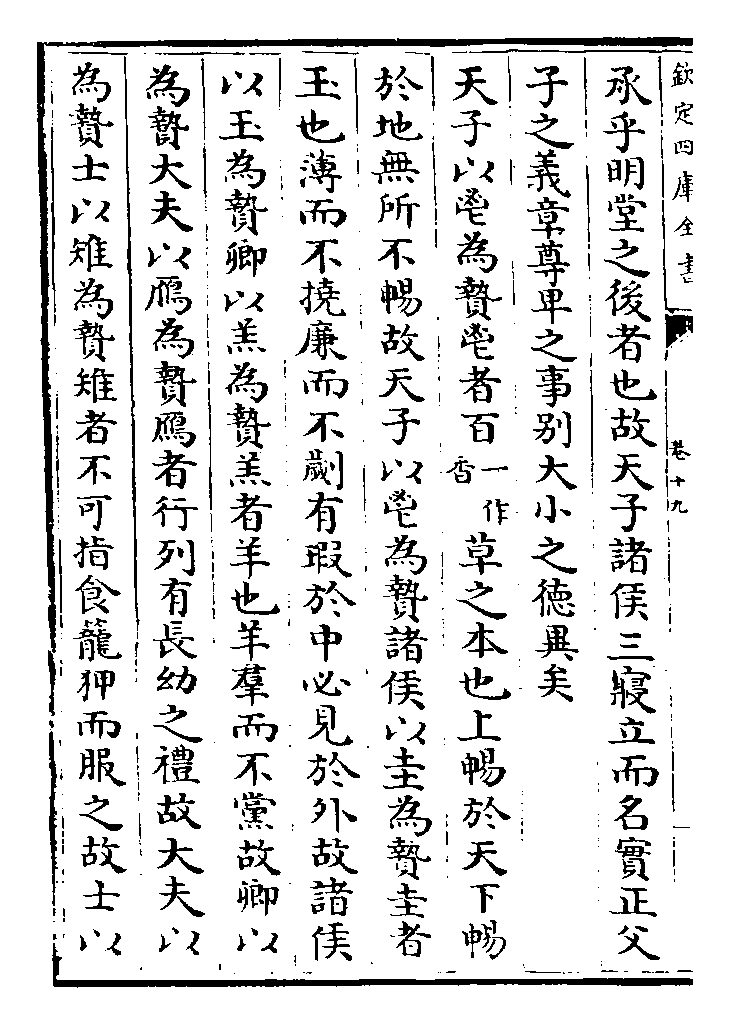 欽定四庫全書
卷十九
承乎明堂之後者也故天子諸侯三寢立而名實正父
子之義章尊卑之事别大小之德異矣
天子以鬯為贄鬯者百一作香草之本也上暢於天下暢
於地無所不暢故天子以鬯為贄諸侯以圭為贄圭者
玉也薄而不撓廉而不劌有瑕於中必見於外故諸侯
以玉為贄卿以羔為贄羔者羊也羊羣而不黨故卿以
為贄大夫以鴈為贄鴈者行列有長幼之禮故大夫以
為贄士以雉為贄雉者不可指食籠狎而服之故士以